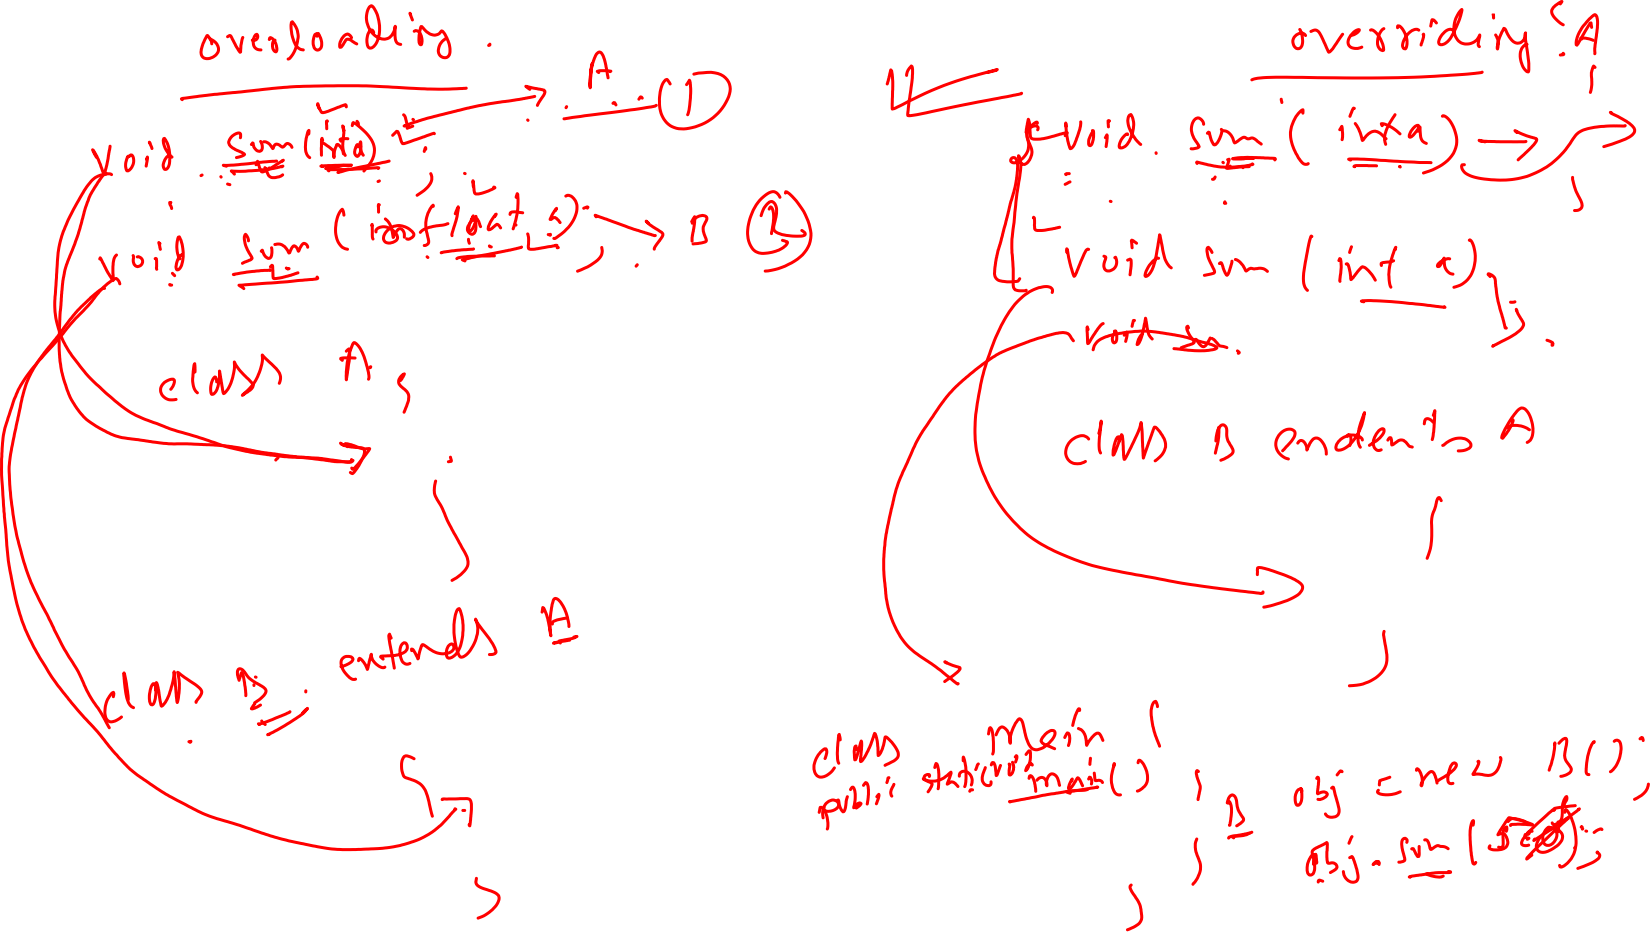 overloading.
A
1
void sum (int a) ;
void sum (float a) ; B 2
class A {
}
class B extends A
{
}
overriding : A
{
void sum ( int a)
}
void sum ( int a) ;
void su
class B extents A
{
}
class Main {
public static void main() {
B obj = new B();
obj.sum(
}
}